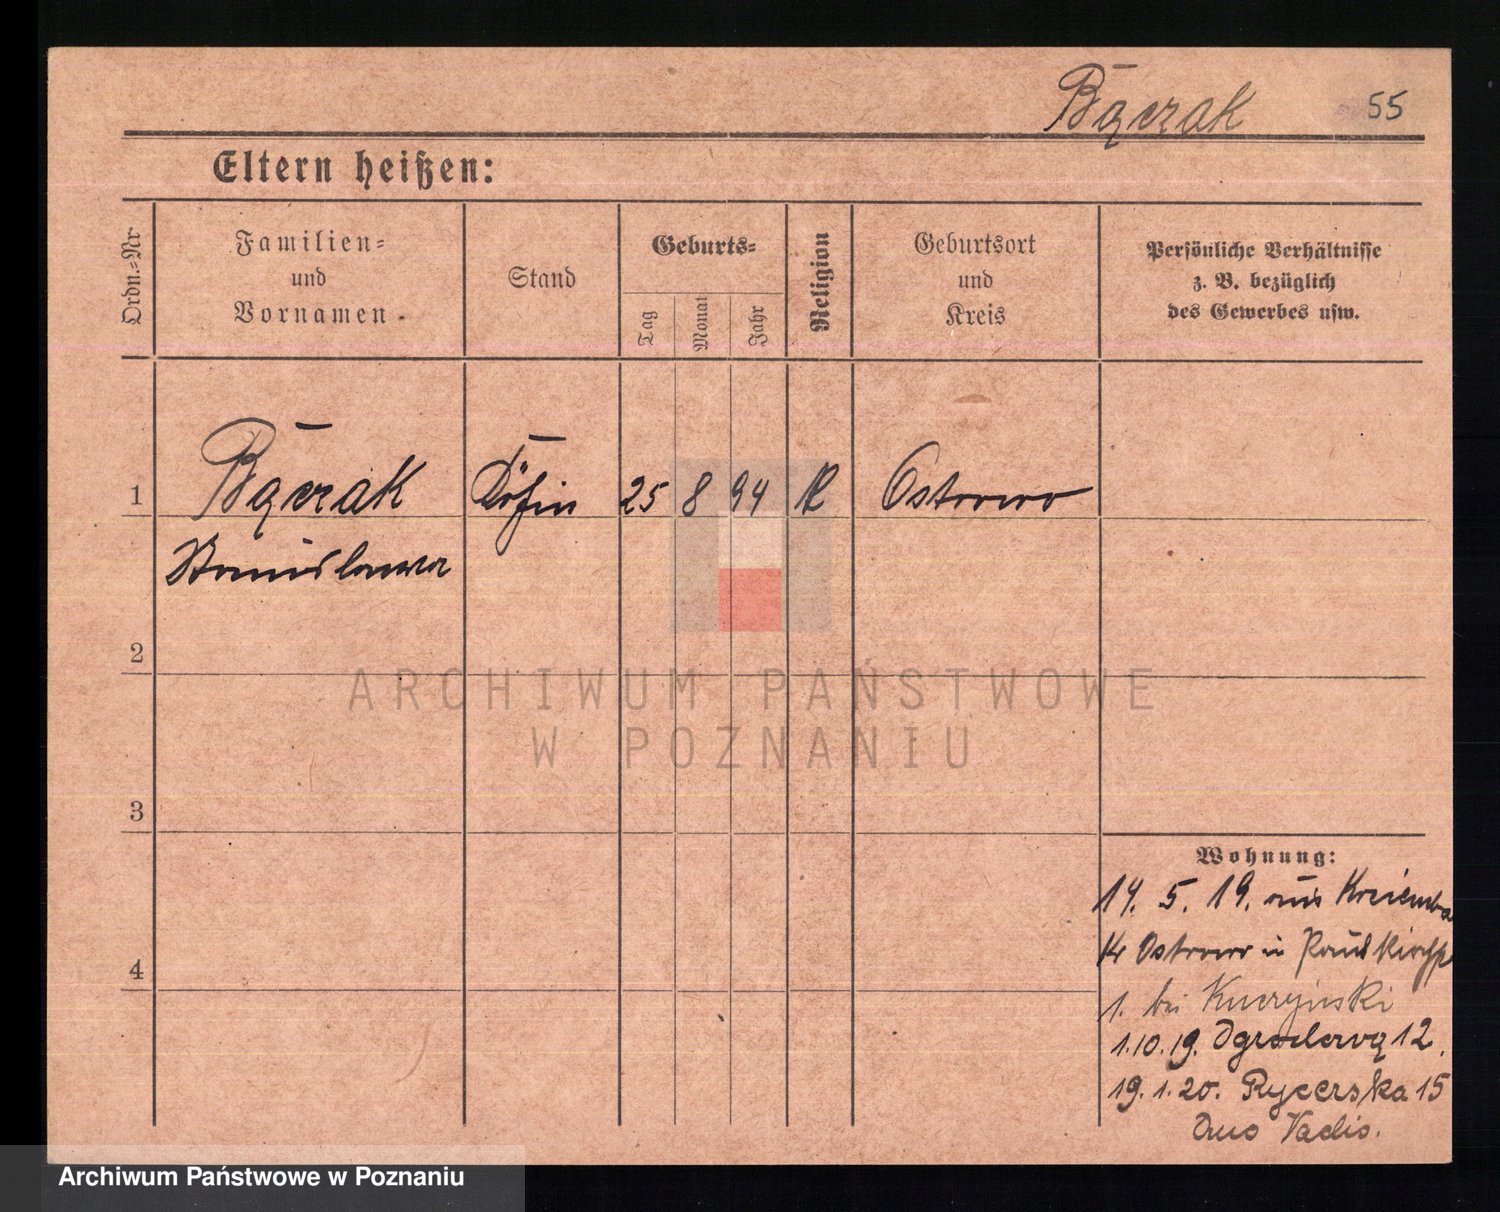 Bączak 55
Eltern heißen:
Ordn.-Nr
Familien-
und
Vornamen.
Stand
Geburts-
Tag
Monat
Jahr
Religion
Geburtsort
und
Kreis
Persönliche Verhältnisse
z. B. bezüglich
des Gewerbes usw.
1 Bączak Köchin 25 8 94 K Ostrowo
Stanislawa
2
3
4
Wohnung:
14. 5. 19. aus
Kr Ostrowo in Paulikirchp
1. bei
1.10.19. Ogrodową 12.
19.1.20. Rycerska 15
Quo Vadis.
ARCHIWUM PAŃSTWOWE
W POZNANIU
Archiwum Państwowe w Poznaniu